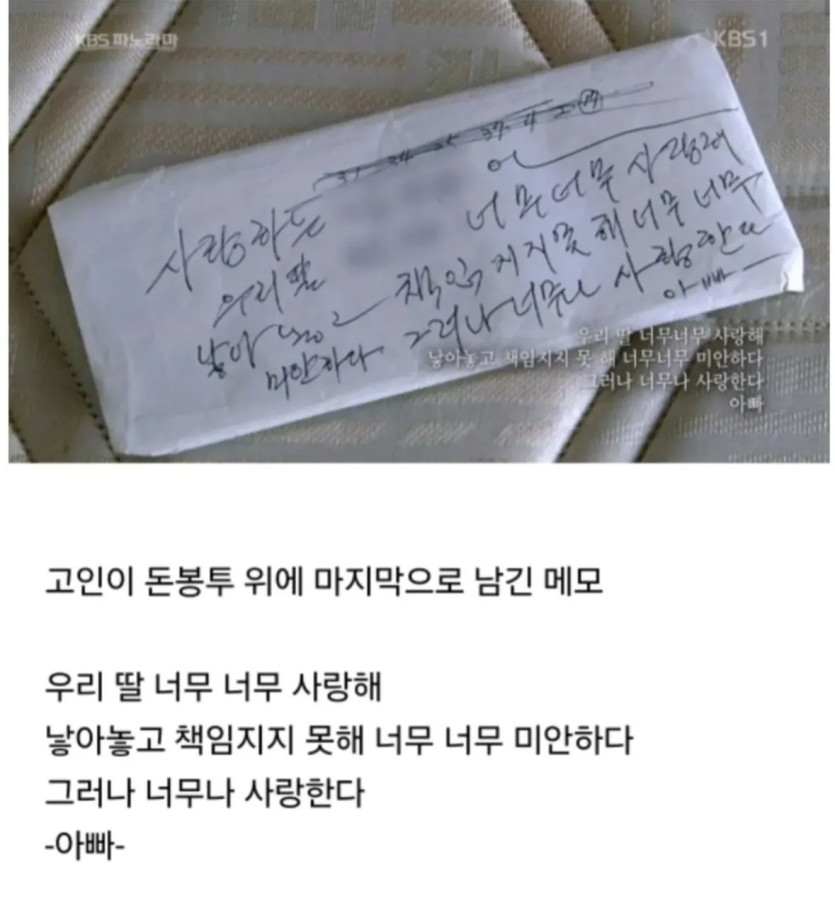 KBS 파노라마
KBS1
사랑하는
우리 딸 너무너무 사랑해
낳아놓고 책임지지 못해 너무 너무
미안하다 그러나 너무나 사랑한다
아빠
우리 딸 너무너무 사랑해
낳아놓고 책임지지 못 해 너무너무 미안하다
그러나 너무나 사랑한다
아빠
고인이 돈봉투 위에 마지막으로 남긴 메모
우리 딸 너무 너무 사랑해
낳아놓고 책임지지 못해 너무 너무 미안하다
그러나 너무나 사랑한다
-아빠-